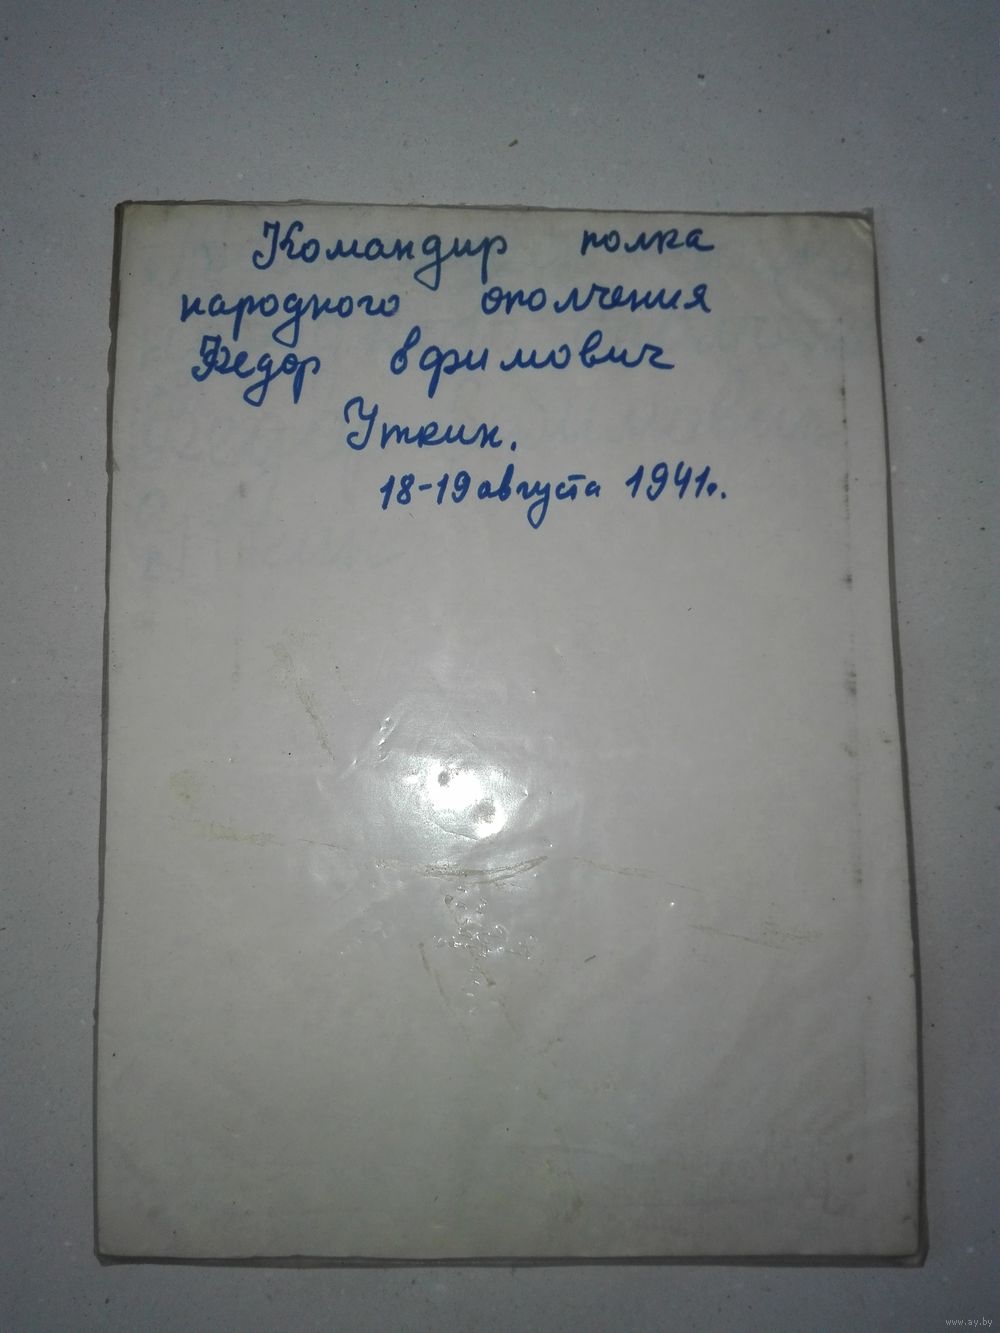 Командир полка
народного ополчения
Федор Ефимович
Уткин.
18-19 августа 1941г.
www.ay.by